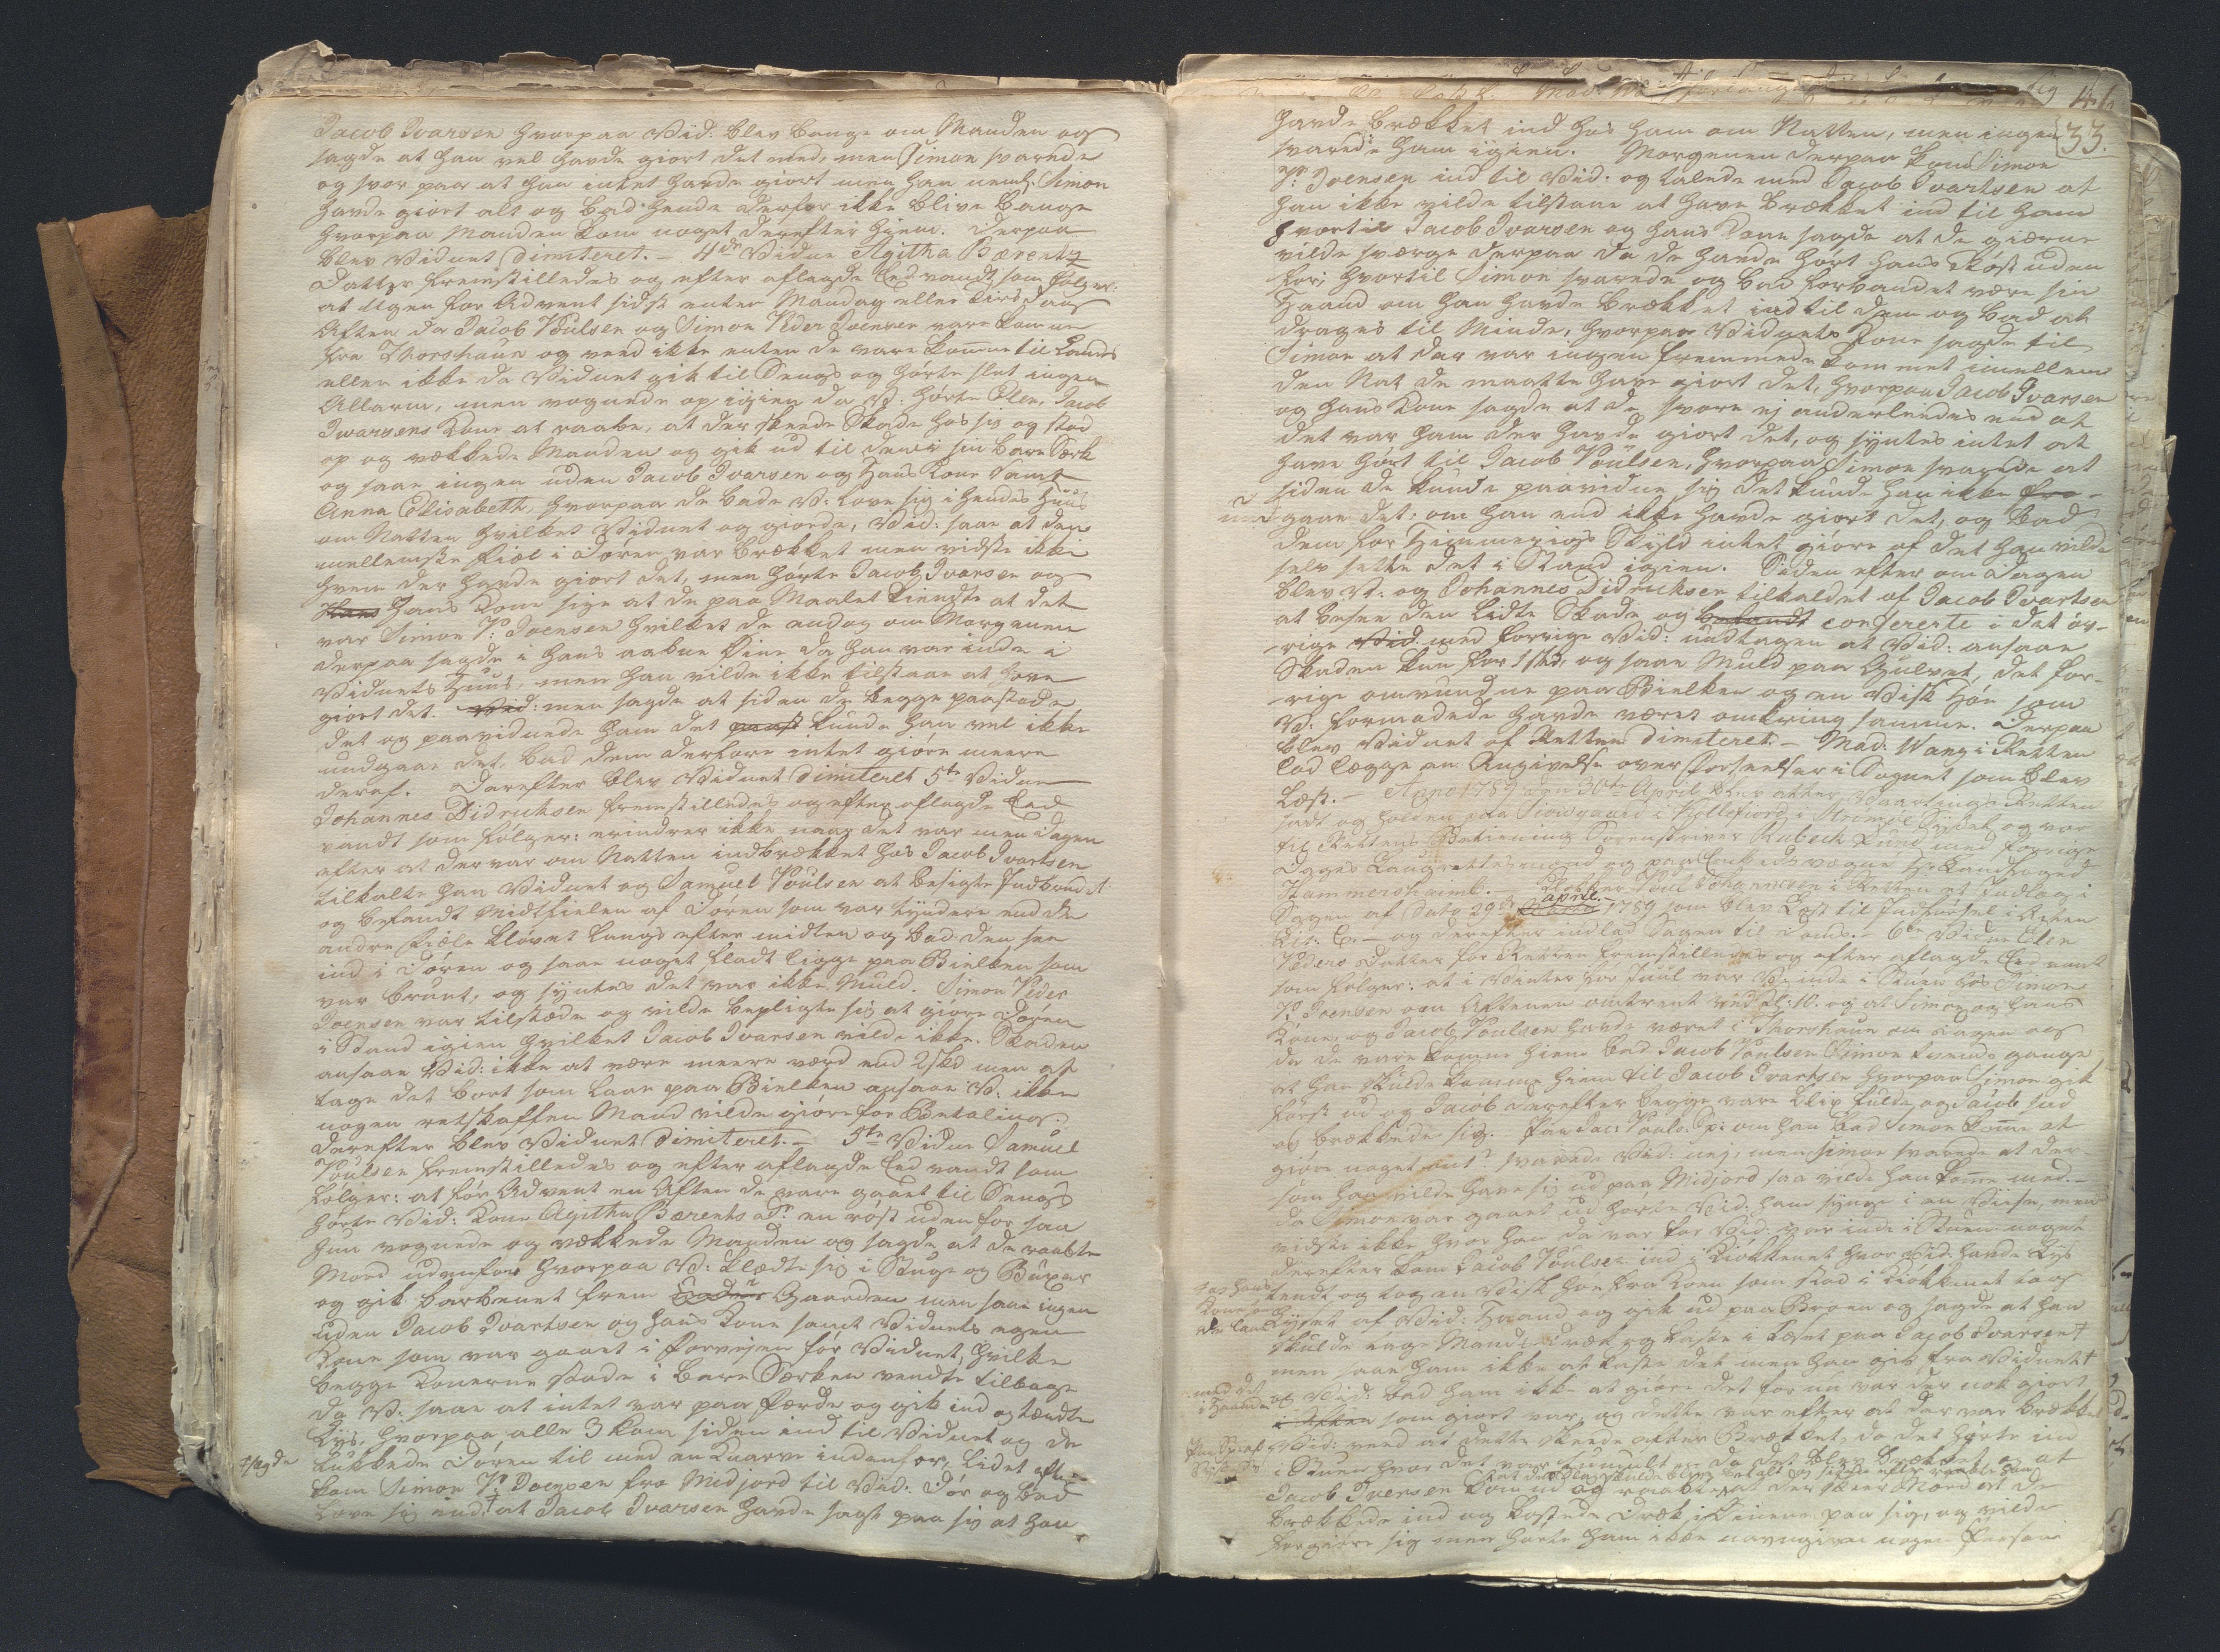 Jacob Ivarsen hvorpaa Vid: blev bange om Manden og
sagde at han vel havde giort det med, men Simon svarede
og svor paa at han intet havde giort men han neml: Simon
havde giort alt og bad hende derfor ikke blive bange
hvorpaa Manden kom noget derefter hiem. Derpaa
blev Vidnet dimiteret. - 4de Vidne Agitha Bærents
Datter fremstilledes og efter aflagde Eed vandt som følger:
at Ugen for Advent sidst enten Mandag eller Tirsdags
Aften da Jacob Poulsen og Simon Peder Joensen vare komne
fra Thorshaun og veed ikke enten de vare komne til Lands
eller ikke da Vidnet gik til Sengs og hørte slet ingen
Allarm, men vognede op igien da V: hørte Elen, Jacob
Ivarsens Kone at raabe, at der skeede Skade hos sig og stod
op og vækkede Manden og gik ud til dem i sin bare Særk
og saae ingen uden Jacob Ivarsen og hans Kone samt
Anna Elisabeth, hvorpaa de bade V: love sig i hendes Huus
om Natten hvilket Vidnet og giorde, Vid: saae at den
mellemste Fiæl i Døren var brækket men vidste ikke
hvem der havde giort det, men hørte Jacob Ivarsen og
Hans hans Kone sige at de paa Maalet kiendte at det
var Simon P: Joensen hvilket de endog om Morgenen
derpaa sagde i hans aabne Øine da han var inde i
Vidnets Huus, men han vilde ikke tilstaae at have
giort det. Vid: men sagde at siden de begge paastode
det og paavidnede ham det paast kunde han vel ikke
undgaae det, bad dem derfore intet giøre meere
deraf. Derefter blev Vidnet dimiteret 5te Vidne
Johannes Didricksen fremstilledes og efter aflagde Eed
vandt som følger: erindrer ikke naar det var men Dagen
efter at der var om Natten indbrækket hos Jacob Ivartsen
tilkalte han Vidnet og Samuel Poulsen at besigte Indbrudet
og befandt Midtfielen af Døren som var tyndere end de
andre Fiæle kløvet langs efter midten og bad dem see
ind i Døren og saae noget kladt ligge paa Bielken som
var bruunt, og syntes det var ikke Muld. Simon Peder
Joensen var tilstæde og vilde bepligte sig at giøre Døren
i Stand igien hvilket Jacob Ivarsen vilde ikke. Skaden
ansaae Vid: ikke at være meere værd end 2 skd men at
tage det bort som laae paa Bielken ansaae V: ikke
nogen retskaffen Mand vilde giøre for Betaling.
Derefter blev Vidnet dimiteret. - 5te Vidne Samuel
Poulsen fremstilledes og efter aflagde Eed vandt som
følger: at før Advent en Aften de vare gaaet til Sengs
hørte Vid: Kone Agitha Bærents Dr en røst uden for saa
hun vognede og vækkede Manden og sagde at de raabte
Mord udenfor hvorpaa V: klædte sig i Støuge og Buxer
og gik barbenet frem Gaarden men saae ingen
uden Jacob Ivartsen og hans Kone samt Vidnets egen
Kone som var gaaet i forvejen før Vidnet, hvilke
begge Konerne stode i bare Særken vendte tilbage
da V: saae at intet var paa Færde og gik ind og tændte
Lys, hvorpaa alle 3 kom siden ind til Vidnet og de
lukkede Døren til med en Knarve indenfor, lidet efter
kom Simon P: Joensen fra Midjord til Vid: Dør og bad
love sig ind † at Jacob Ivarsen havde sagt paa sig at han
† sagde
33.
havde brækket ind hos ham om Natten, men ingen
svarede ham igien. Morgenen derpaa kom Simon
P: Joensen ind til Vid: og talede med Jacob Ivartsen at
han ikke vilde tilstaae at have brækket ind til ham
hvortil Jacob Ivarsen og hans Kone sagde at de giærne
vilde sværge derpaa da de havde hørt hans Røst uden
for, hvortil Simon svarede og bad forbandet være sin
Haand om han havde brækket ind til dem og bad at
drages til Minde, hvorpaa Vidnets Kone sagde til
Simon at der var ingen fremmede kommet imellem
den Nat de maatte have giort det, hvorpaa Jacob Ivarsen
og hans Kone sagde at de svore ej anderledes end at
det var ham der havde giort det, og syntes intet at
have hørt til Jacob Poulsen, hvorpaa Simon svarede at
siden de kunde paavidne sig det kunde han ikke fra-
und gaae det, om han end ikke havde giort det, og bad
dem for Himmerigs Skyld intet giøre af det han vilde
selv sætte det i Stand igien. Siden efter om Dagen
blev V: og Johannes Didricksen tilkaldet af Jacob Ivartsen
at besee den lidte Skade og befandt confererte i det øv-
rige Vid: med forrige Vid: undtagen at Vid: ansaae
Skaden kun for 1 skd, og saae Muld paa Gulvet, det for-
rige omvundne paa Bielken og en Visk Høe som
V: formodede havde været omkring samme. Derpaa
blev Vidnet af Retten dimiteret. - Mad: Wang i Retten
lod lægge en Angivelse over Forseelser i Sognet som blev
læst. - Anno 1789 den 30te April blev atter Vaartings Retten
sadt og holden paa Siovgaard i Kollefiord i Strømøe Syssel og var
til Rettens Betiening Sorenskriver Rubech Lund med forrige
Dages Laugrettesmænd og paa Embeds vegne Hr Landfoged
Hammershaimb. - Klokker Poul Johannesen i Retten et Indlæg i
Sagen af Dato 29de april 1789 som blev læst til Indførsel i Acten
Lit: C. - og derefter indlod Sagen til Doms. - 6te Vidne Elen
Peders Datter for Retten fremstilledes og efter aflagde Eed vant
som følger: at i Vinter for Juul var V: inde i Stuen hos Simon
P: Joensen om Aftenen omtrent ved Kl: 10. og at Simon og hans
Kone, og Jacob Poulsen havde været i Thorshaun om Dagen og
da de vare komne hiem bad Jacob Poulsen Simon tvende gange
at han skulde komme hiem til Jacob Ivartsen hvorpaa Simon gik
først ud og Jacob derefter begge vare lige fulde og Jacob sad
og brækkede sig. Jac: Pouls: Sp: om han bad Simon komme at
giøre noget ont? svarede Vid: nej, men Simon svarede at der-
som han vilde have sig ud paa Midjord saa vilde han komme med. -
da Simon var gaaet ud hørte Vid: ham synge i en Viise, men
vidste ikke hvor han da var for Vid: var inde i Stuen noget
derefter kom Jacob Poulsen ind i Kiøkkenet hvor Vid: havde Lys
tændt og tog en Visk Høe fra Koen som stod i Kiøkkenet tog
Lyset af Vid: Haand og gik ud paa Broen og sagde at han
skulde tage Mandsdræk og kaste i Løset paa Jacob Ivarsen †
men saae ham ikke at kaste det men han gik fra Vidnet †
og Vid: bad ham ikke at giøre det for nu var der nok giort
som giort var, og dette var efter at der var brækket
Vid: veed at dette skeede efter Brækket, da det hørte ind
i Stuen hvor det var tumult da det blev brækket, og at
Jacob Iversen kom ud og raabte at der skeer Mord at de
brækkede ind og kastede Dræk i Øinene paa sig, og vilde
forgiøre sig men hørte ham ikke navngive nogen Person